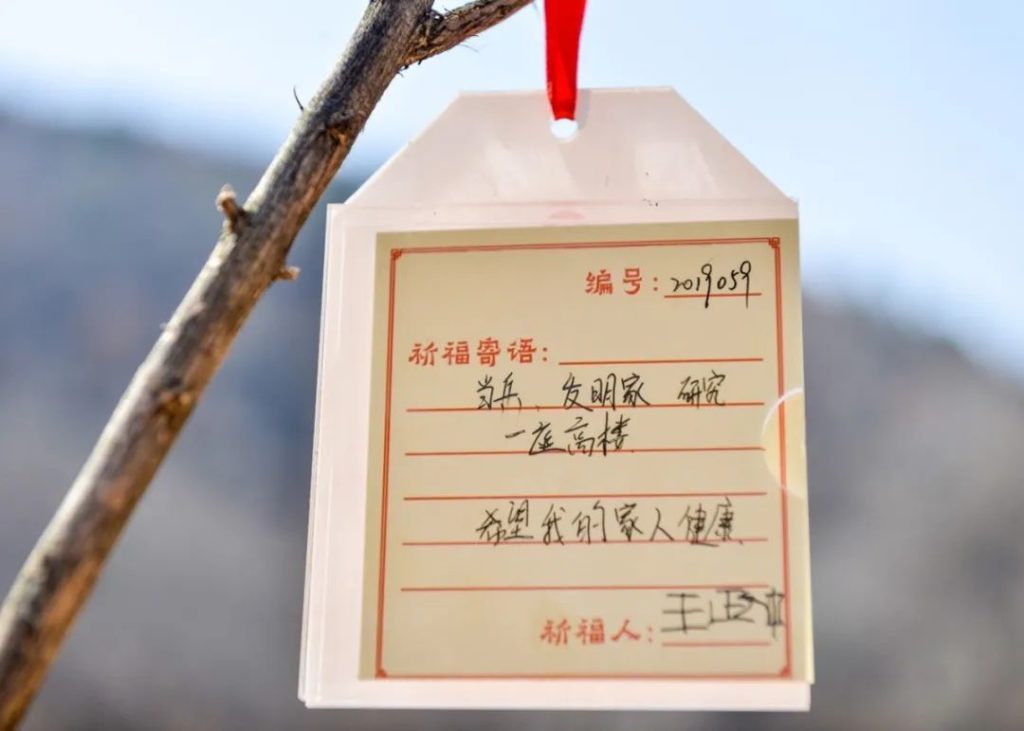 编号：2019059
祈福寄语：
当兵、发明家 研究
一座高楼
希望我的家人健康
祈福人：王